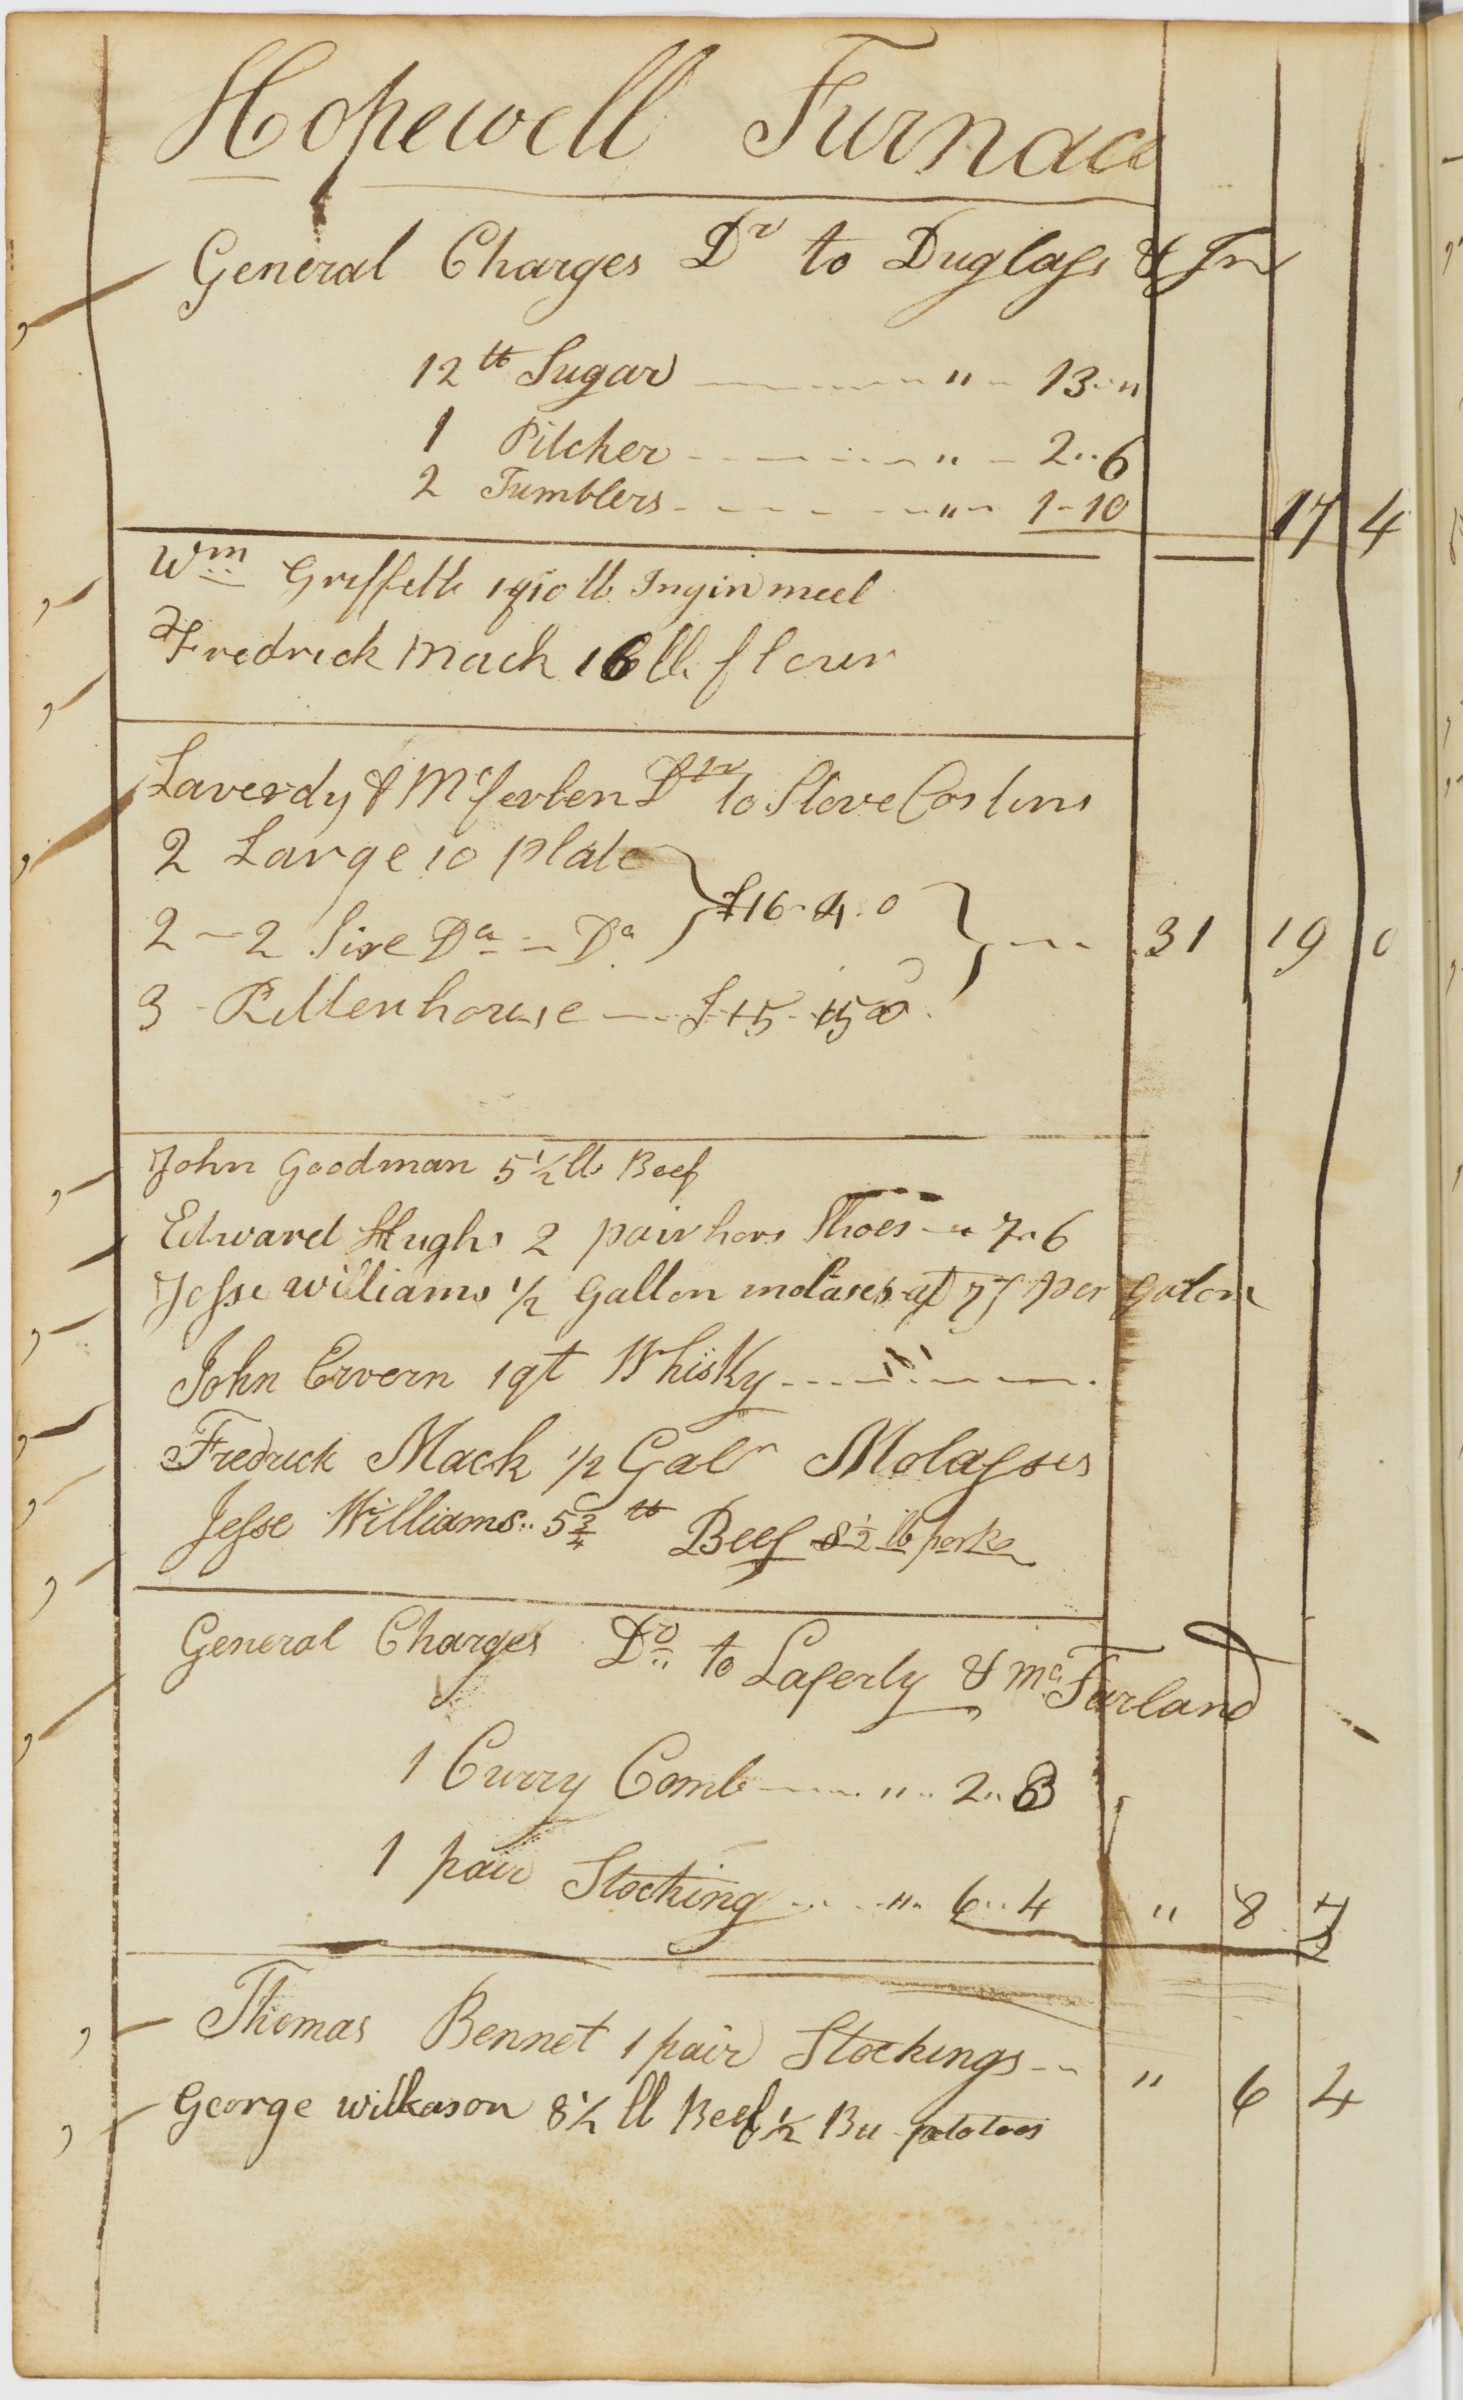 Hopewell Furnace
General Charges Dr to Duglass &
12 lb Sugar " 13 "
1 Pitcher " 2 .. 6
2 Tumblers " 1 - 10 17 4
Wm Griffeth lb Ingin meel
Fredrick Mack 16 lb flour
Laverdy & McFerlen Dr to Stove Castins
2 Large 10 plate
£16 - 4 - 0
2 - 2 Sise Do - Do 31 19 0
3 - Rittenhouse £15 - 15 0
John Goodman 5 1/2 lb Beef
Edward Hughs 2 pair hors Shoes " 7 .. 6
Jesse Williams 1/2 Gallon molases at per Galon
John Ervern 1 qt Whisky
Fredrick Mack 1/2 Galn Molasses
Jesse Williams .. 5 3/4 lb Beef 8 1/2 lb porke
General Charges Dr to Laferty & McFarland
1 Curry Comb " 2 .. 3
1 pair Stocking " 6 .. 4 " 8 7
Thomas Bennet 1 pair Stockings " 6 4
George Wilkason 8 1/2 lb Beef 1/2 Bu potatoes